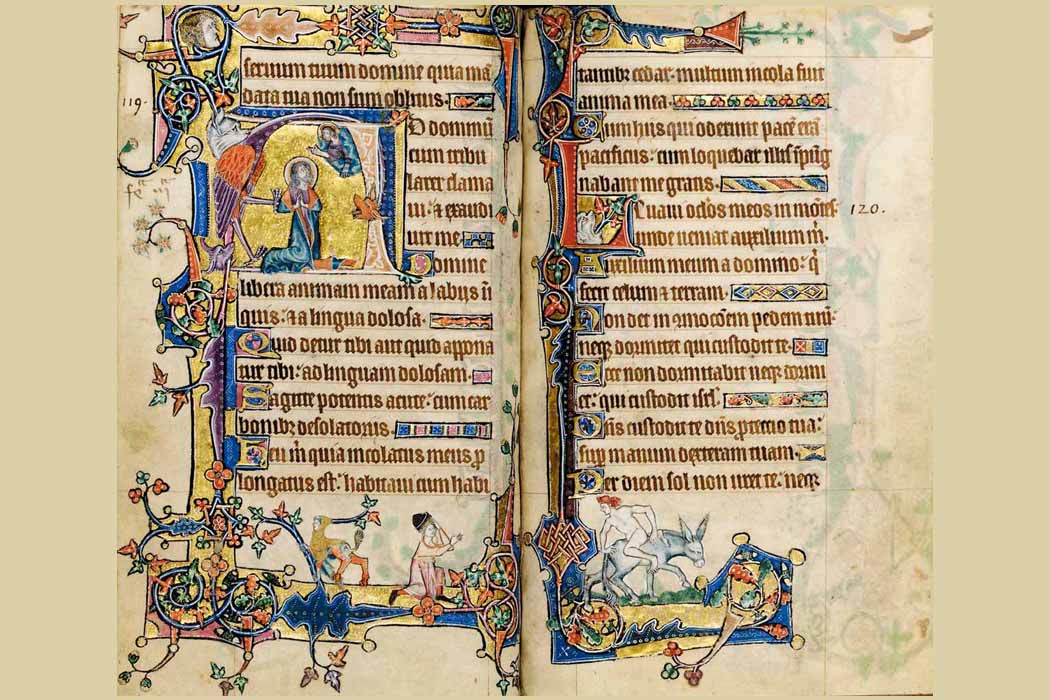 seruum tuum domine quia mā
data tua non sum oblitus.
119.
AD dominū
cum tribu
larer clama
ui: ⁊ exaudi
uit me.
Domine
libera animam meam a labiis ini
quis: ⁊ a lingua dolosa.
Quid detur tibi aut quid appona
tur tibi: ad linguam dolosam.
Sagitte potentis acute: cum car
bonibꝫ desolatoriis.
Heu m̄ quia incolatus meus ꝓ
longatus est: habitaui cum habi
tantibꝫ cedar. multum incola fuit
anima mea.
Cum hiis qui oderunt pacē erā
pacificus: cum loquebar illis īpug
nabant me gratis.
Leuaui oclos meos in mōtes:
120.
unde ueniat auxilium m̄.
Auxilium meum a domino: q̄
fecit celum ⁊ terram.
Non det in pedem tuū:
neqꝫ dormitet qui custodit te.
Ecce non dormitabit neqꝫ dormi
et: qui custodit isrl̄.
Dn̄s custodit te dn̄s ꝓtectio tua:
suꝑ manum dexteram tuam.
Per diem sol non uret te: neqꝫ